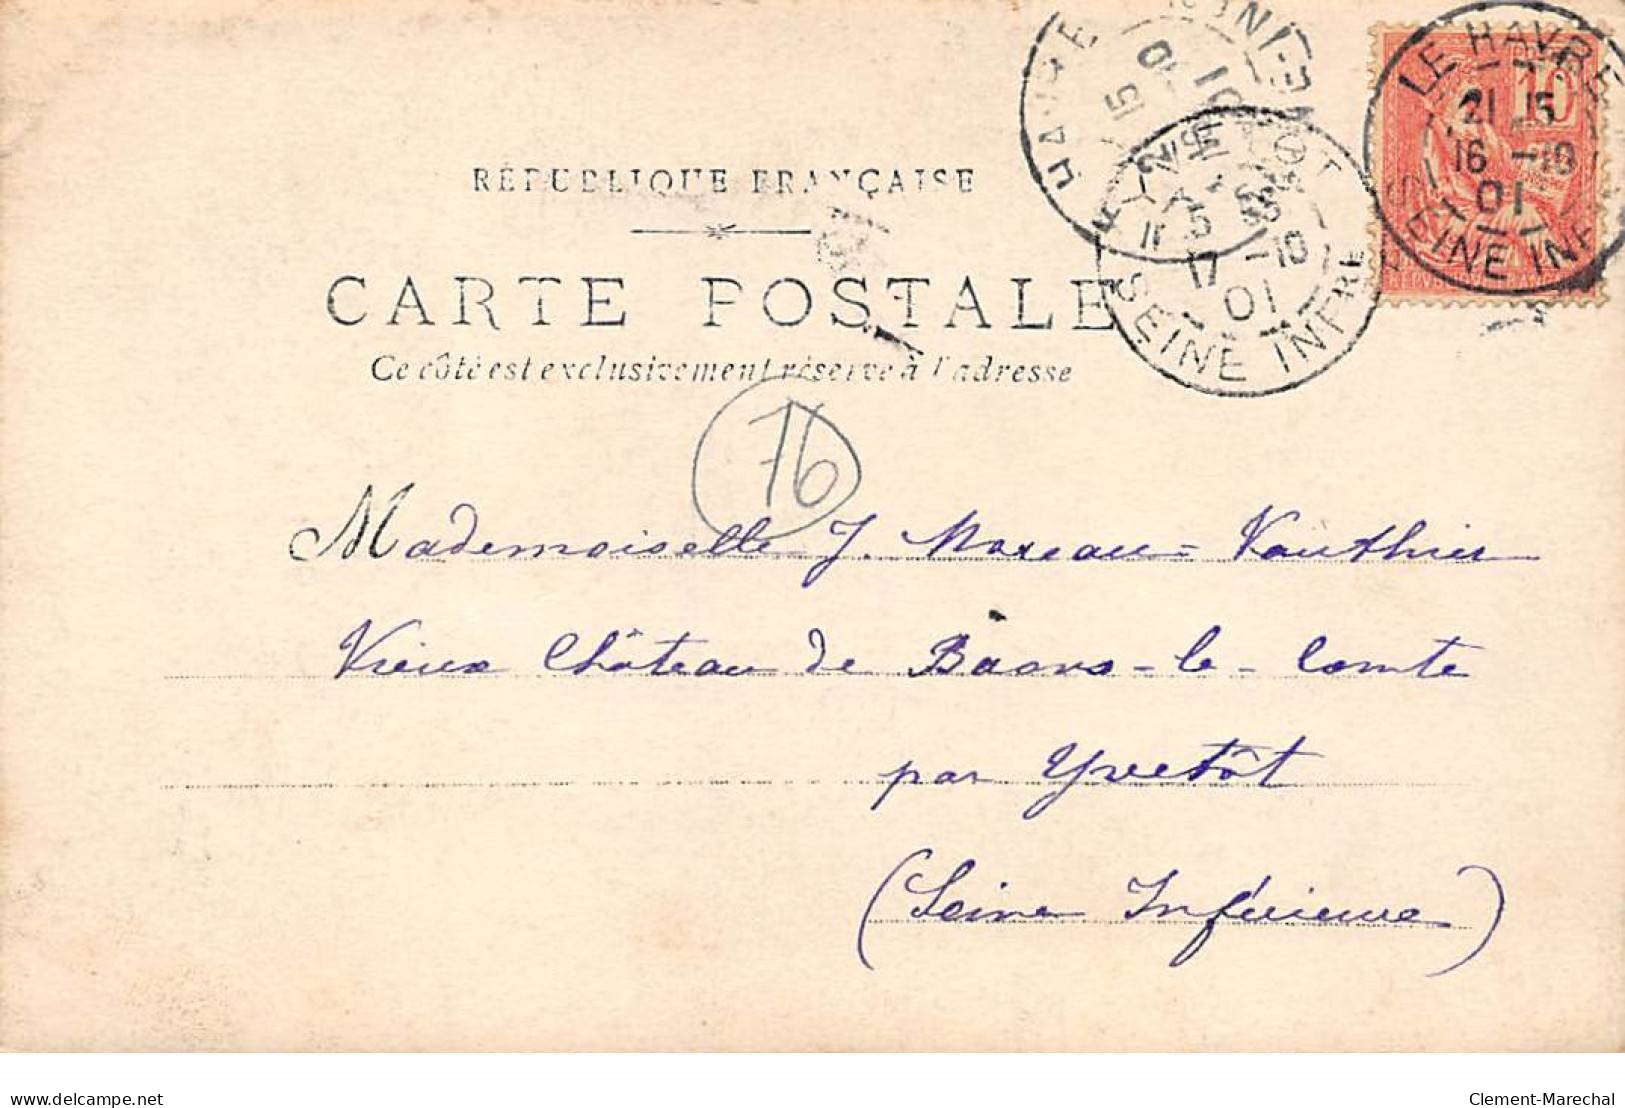 RÉPUBLIQUE FRANÇAISE
CARTE POSTALE
Ce côté est exclusivement réservé à l'adresse
LE HAVRE
21 15
16 -10
01
SEINE INF
10
YVETOT
5 35
17 -10
01
SEINE INFRE
HAVRE
15
10
01
76
Mademoiselle J. Moreau = Vauthier
Vieux Château de Baons-le-Comte
par Yvetôt
(Seine Inférieure)
delcampe.net
Clement-Marechal